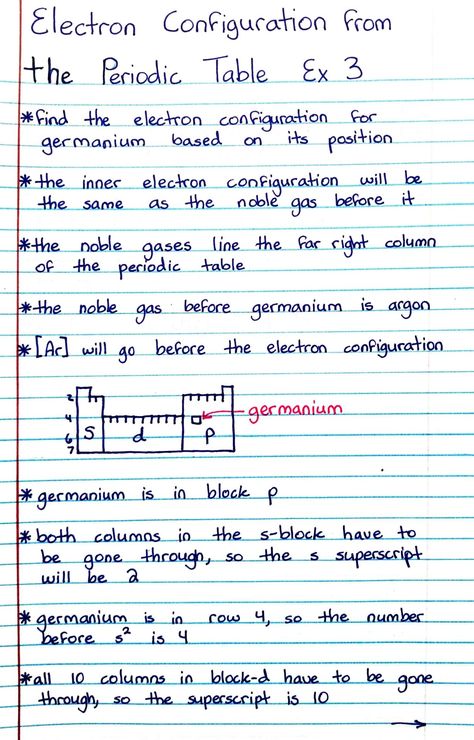 Electron Configuration from
the Periodic Table Ex 3
*find the electron configuration for
germanium based on its position
*the inner electron configuration will be
the same as the noble gas before it
*the noble gases line the far right column
of the periodic table
*the noble gas before germanium is argon
*[Ar] will go before the electron configuration
2
4
6
7
s
d
p
germanium
*germanium is in block p
*both columns in the s-block have to
be gone through, so the s superscript
will be 2
*germanium is in row 4, so the number
before s² is 4
*all 10 columns in block-d have to be gone
through, so the superscript is 10
→